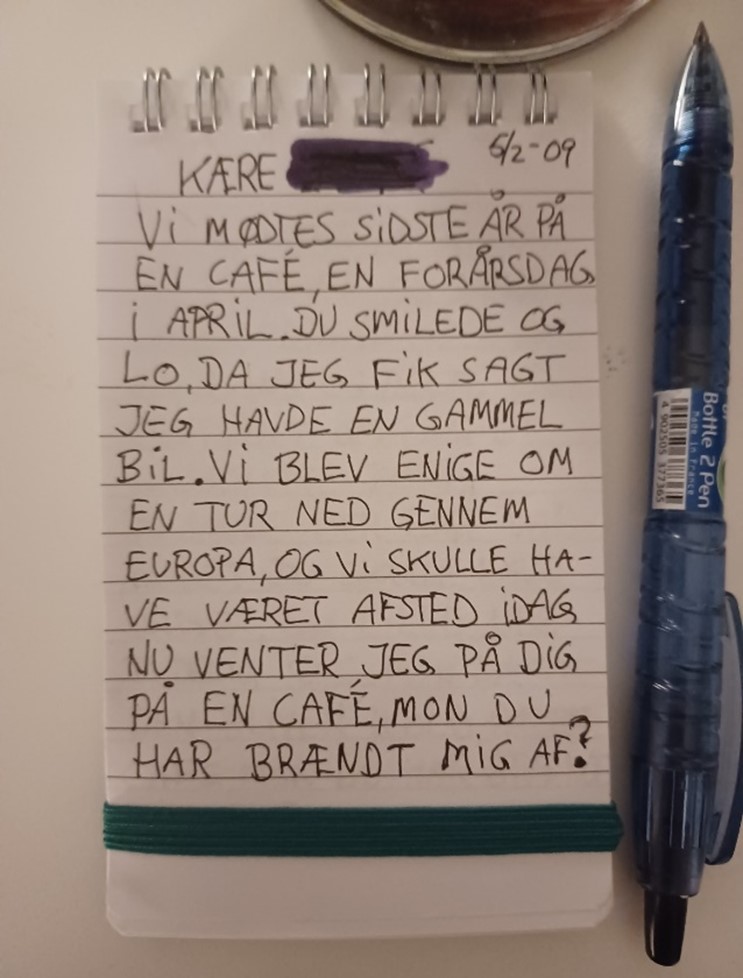 6/2-09
KÆRE
Vi MØDTES SiDSTE ÅR PÅ
EN CAFÉ, EN FORÅRSDAG
i APRiL. DU SMiLEDE OG
LO, DA JEG FiK SAGT
JEG HAVDE EN GAMMEL
BiL. Vi BLEV ENIGE OM
EN TUR NED GENNEM
EUROPA, OG Vi SKULLE HA-
VE VÆRET AFSTED iDAG
NU VENTER JEG PÅ DiG
PÅ EN CAFÉ, MON DU
HAR BRÆNDT MiG AF?
Bottle 2 Pen
Made in France
4 902505 377365